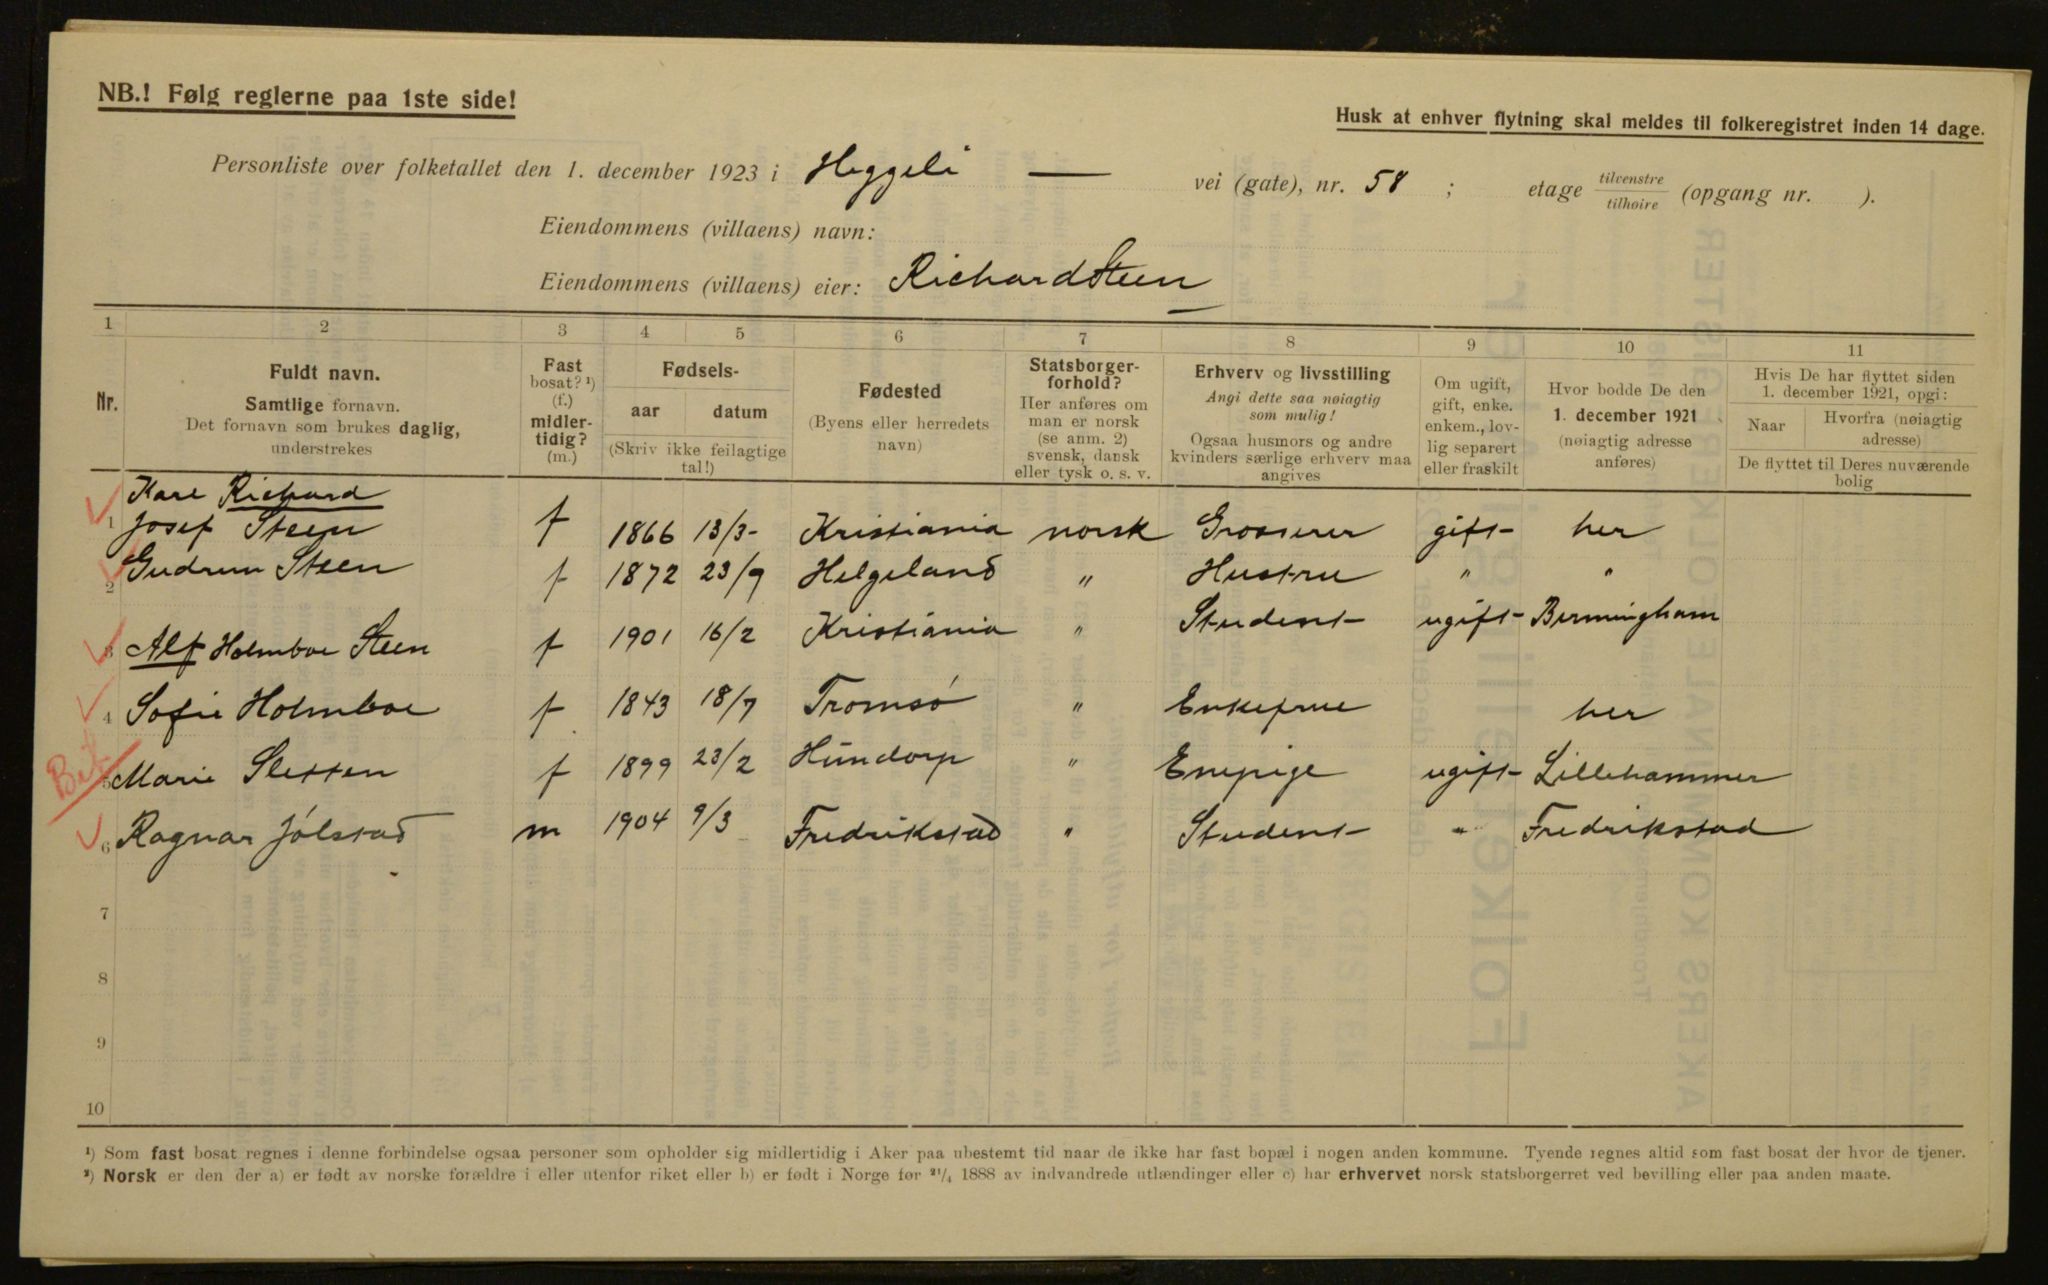 NB.! Følg reglerne paa 1ste side!
Husk at enhver flytning skal meldes til folkeregistret inden 14 dage.
Personliste over folketallet den 1. december 1923 i Heggeli — vei (gate), nr. 58 ; etage tilvenstre tilhøire (opgang nr. ).
Eiendommens (villaens) navn:
Eiendommens (villaens) eier: Richard Steen
1 2 3 4 5 6 7 8 9 10 11
Nr.
Fuldt navn.
Samtlige fornavn.
Det fornavn som brukes daglig,
understrekes
Fast
bosat? ¹)
(f.)
midler-
tidig?
(m.)
Fødsels-
aar datum
(Skriv ikke feilagtige
tal!)
Fødested
(Byens eller herredets
navn)
Statsborger-
forhold?
Her anføres om
man er norsk
(se anm. 2)
svensk, dansk
eller tysk o. s. v.
Erhverv og livsstilling
Angi dette saa nøiagtig
som mulig!
Ogsaa husmors og andre
kvinders særlige erhverv maa
angives
Om ugift,
gift, enke.
enkem., lov-
lig separert
eller fraskilt
Hvor bodde De den
1. december 1921
(nøiagtig adresse
anføres)
Hvis De har flyttet siden
1. december 1921, opgi:
Naar Hvorfra (nøiagtig
adresse)
De flyttet til Deres nuværende
bolig
Karl Richard
1 Josef Steen f 1866 13/3- Kristiania norsk Grosserer gift her
2 Gudrun Steen f 1872 23/9 Helgeland " Hustru " "
3 Alf Holmboe Steen f 1901 16/2 Kristiania " Student ugift Birmingham
4 Sofie Holmboe f 1843 18/7 Tromsø " Enkefrue her
5 Marie Sletten f 1899 23/2 Hundorp " Enepige ugift Lillehammer
6 Ragnar Jølstad m 1904 9/3 Fredrikstad " Student " Fredrikstad
7
8
9
10
¹) Som fast bosat regnes i denne forbindelse ogsaa personer som opholder sig midlertidig i Aker paa ubestemt tid naar de ikke har fast bopæl i nogen anden kommune. Tyende regnes altid som fast bosat der hvor de tjener.
²) Norsk er den der a) er født av norske forældre i eller utenfor riket eller b) er født i Norge før ²¹/₄ 1888 av indvandrede utlændinger eller c) har erhvervet norsk statsborgerret ved bevilling eller paa anden maate.